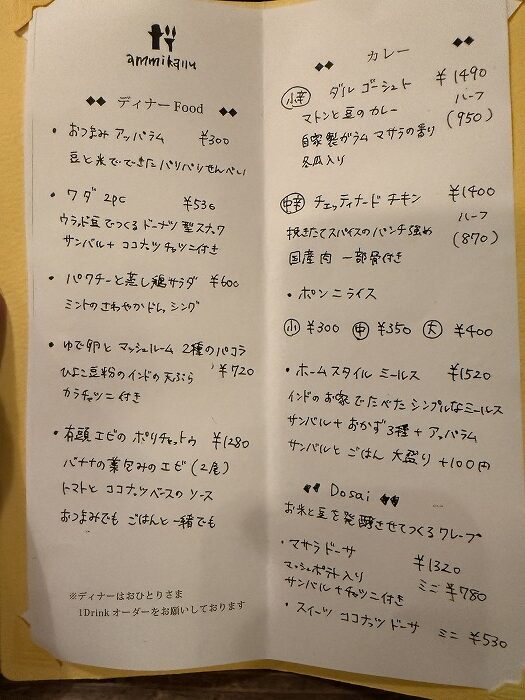 ammikallu
ディナーFood
・おつまみ アッパラム ¥300
豆と米でできたパリパリせんべい
・ワダ 2pc ¥530
ウラッド豆でつくるドーナツ型スナック
サンバル+ココナッツチャツニ付き
・パクチーと蒸し鶏サラダ ¥600
ミントのさわやかドレッシング
・ゆで卵とマッシュルーム 2種のパコラ
ひよこ豆粉のインドの天ぷら ¥720
カラチャツニ付き
・有頭エビのポリチャットゥ ¥1280
バナナの葉包みのエビ(2尾)
トマトとココナッツベースのソース
おつまみでも ごはんと一緒でも
※ディナーはおひとりさま
1Drinkオーダーをお願いしております
カレー
小辛 ダルゴーシュト ¥1490
マトンと豆のカレー ハーフ
自家製ガラムマサラの香り (950)
冬瓜入り
中辛 チェッティナードチキン ¥1400
挽きたてスパイスのパンチ強め ハーフ
国産肉 一部骨付き (870)
・ポンニライス
小 ¥300 中 ¥350 大 ¥400
・ホームスタイル ミールス ¥1520
インドのお家でたべた シンプルなミールス
サンバル+おかず3種+アッパラム
サンバルとごはん 大盛り +100円
Dosai
お米と豆を発酵させてつくるクレープ
・マサラドーサ ¥1320
マッシュポテト入り ミニ ¥780
サンバル+チャツニ付き
・スイーツ ココナッツドーサ ミニ ¥530